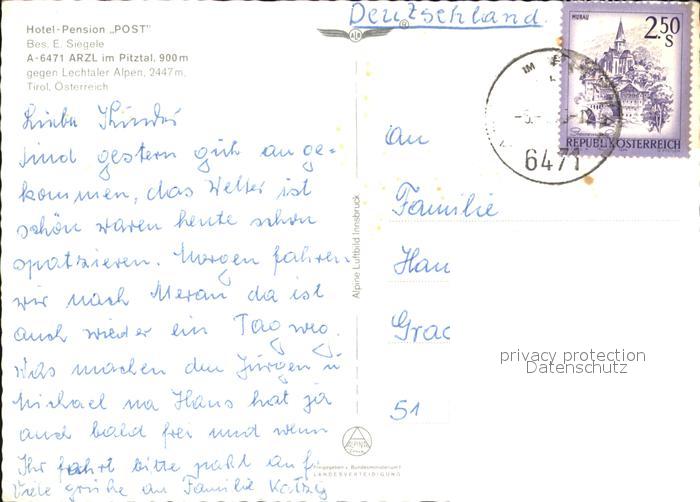 Deutschland
Hotel-Pension „POST"
Bes. E. Siegele
A-6471 ARZL im Pitztal, 900 m
gegen Lechtaler Alpen, 2447 m,
Tirol, Österreich
Liebe Kinder
sind gestern gut ange-
kommen, das Wetter ist
schön waren heute schon
spatzieren. Morgen fahren
wir nach Meran da ist
auch wieder ein Tag weg.
Was machen den Jürgen u
Michael na Hans hat ja
auch bald frei und wenn
Ihr fahrt bitte paßt auf.
Viele grüße an Familie
Alpine Luftbild Innsbruck
Freigegeben v. Bundesministerium f.
LANDESVERTEIDIGUNG
MURAU
2.50
S
REPUBLIK ÖSTERREICH
IM
6471
an
Familie
Han
Grac
51
privacy protection
Datenschutz